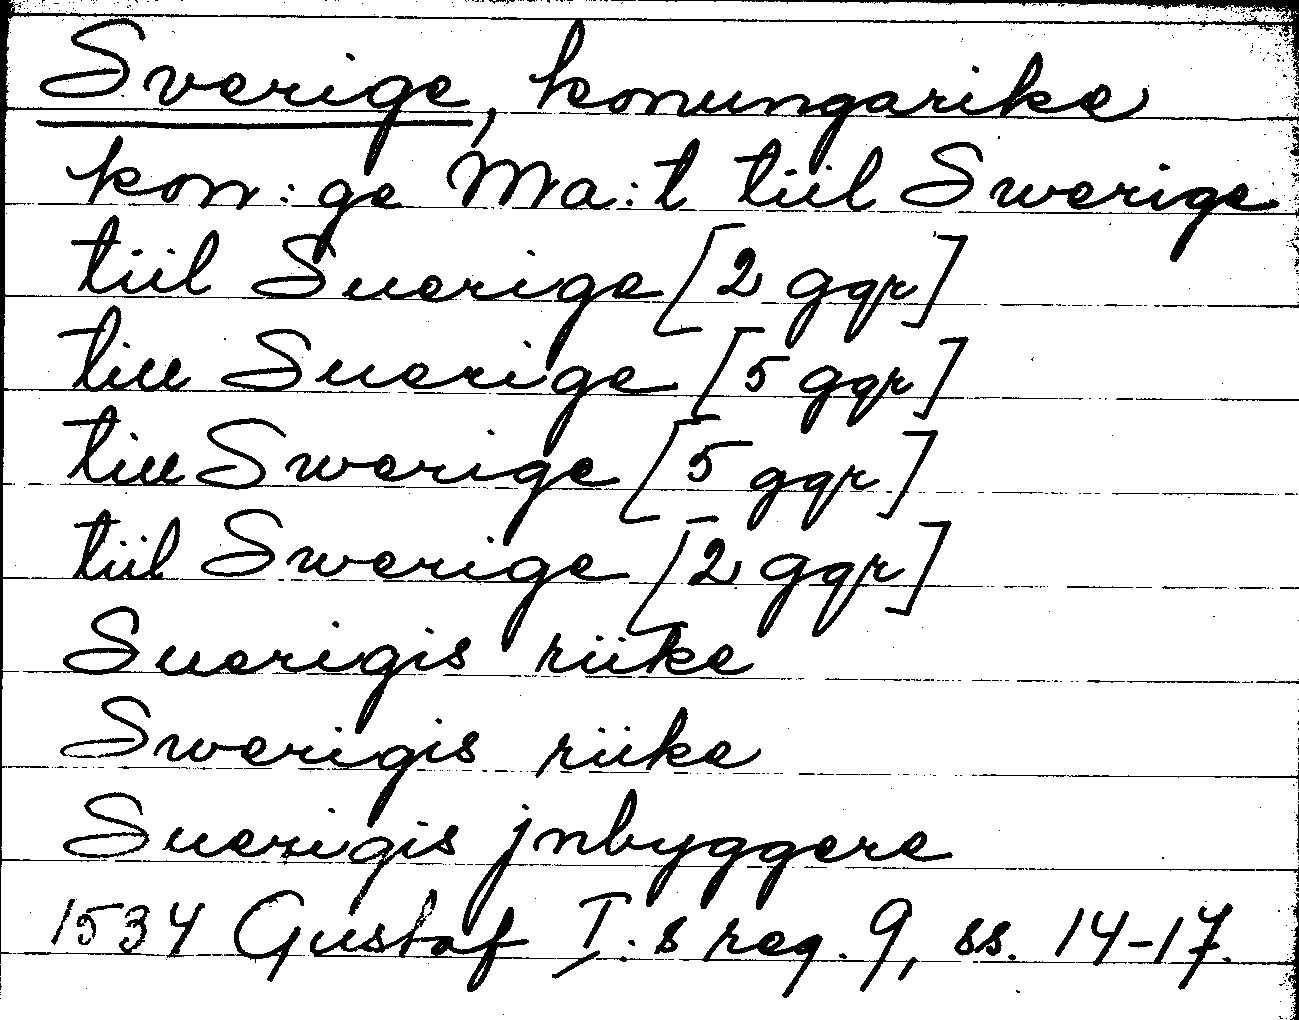 Sverige, konungarike
kon:ge Ma:t tiil Swerige
tiil Suerige [2 ggr]
till Suerige [5 ggr]
till Swerige [5 ggr]
tiil Swerige [2 ggr]
Suerigis riike
Swerigis riike
Suerigis jnbyggere
1534 Gustaf I:s reg. 9, ss. 14-17.